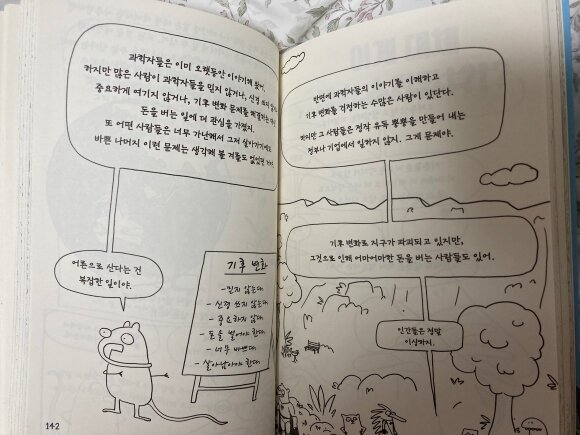 과학자들은 이미 오랫동안 이야기해 왔어.
하지만 많은 사람이 과학자들을 믿지 않거나, 신경 쓰지
중요하게 여기지 않거나, 기후 변화 문제를 해결하는
돈을 버는 일에 더 관심을 가졌지.
또 어떤 사람들은 너무 가난해서 그저 살아가기에도
바쁜 나머지 이런 문제는 생각해 볼 겨를도 없었던 거야.
어른으로 산다는 건
복잡한 일이야.
기후 변화
- 믿지 않는다.
- 신경 쓰지 않는다.
- 중요하지 않다.
- 돈을 벌어야 한다.
- 너무 바쁘다.
- 살아남아야 한다.
142
반면에 과학자들의 이야기를 이해하고
기후 변화를 걱정하는 수많은 사람이 있단다.
하지만 그 사람들은 정작 유독 뿡뿡을 만들어 내는
정부나 기업에서 일하지 않지. 그게 문제야.
기후 변화로 지구가 파괴되고 있지만,
그것으로 인해 어마어마한 돈을 버는 사람들도 있어.
인간들은 정말
이상하지.